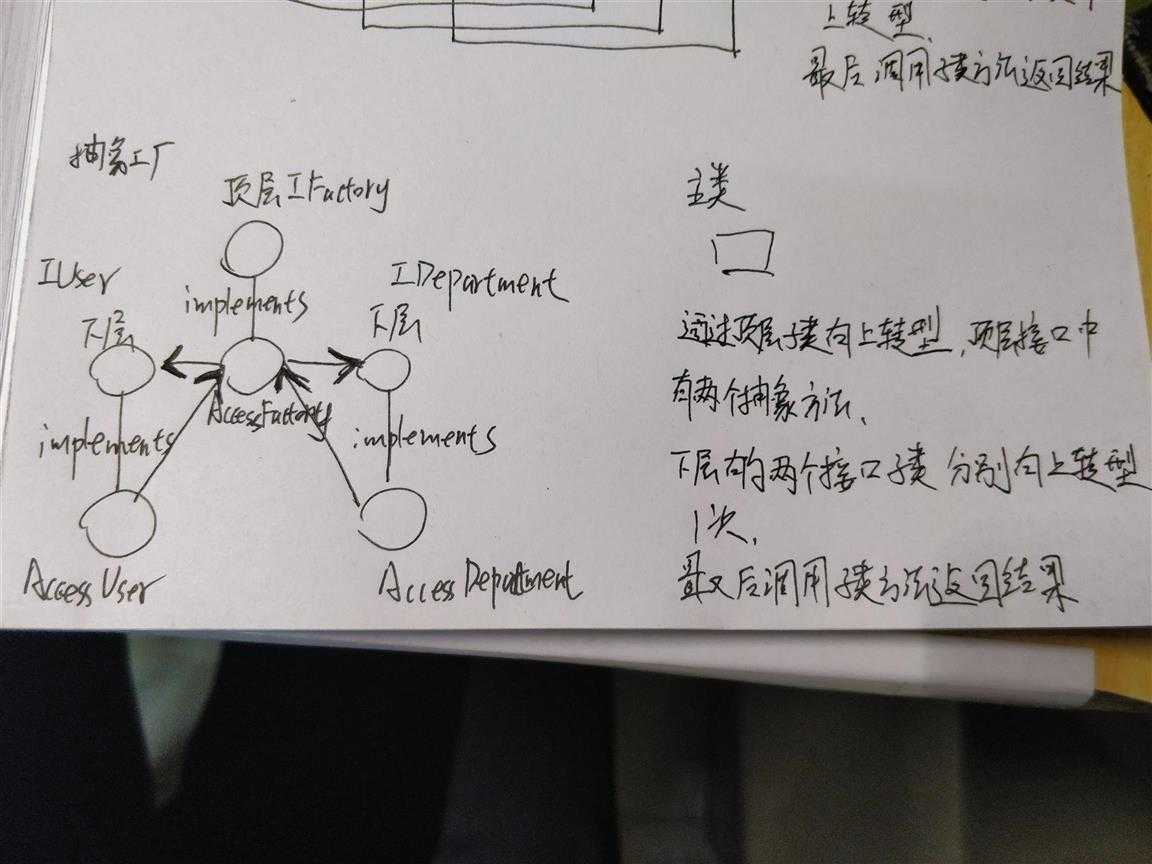 上转型.
最后调用子类方法返回结果
抽象工厂
顶层IFactory
主类
IUser
IDepartment
implements
下层
下层
AccessFactory
implements
implements
AccessUser
AccessDepartment
通过顶层子类向上转型,顶层接口中
有两个抽象方法.
下层有的两个接口子类 分别向上转型
1次.
最后调用子类方法返回结果